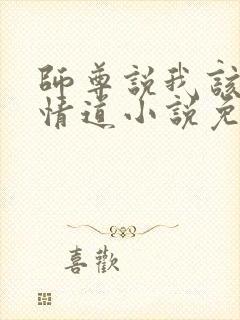 師尊說我該
情道小說免
喜歡